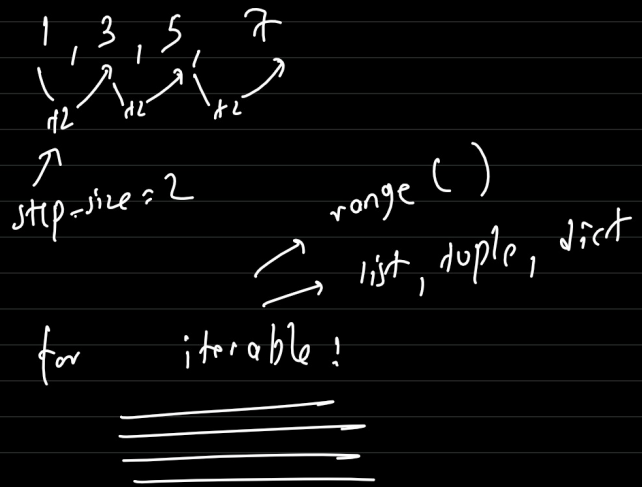 1, 3, 5, 7
+2 +2 +2
step-size = 2
range ( )
list, tuple, dict
for iterable :